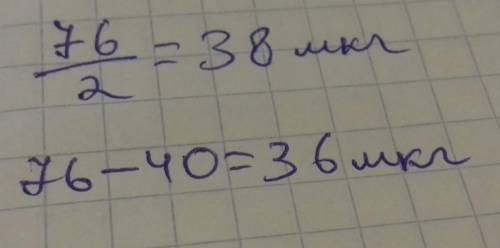 76/2 = 38 мкг
76 – 40 = 36 мкг